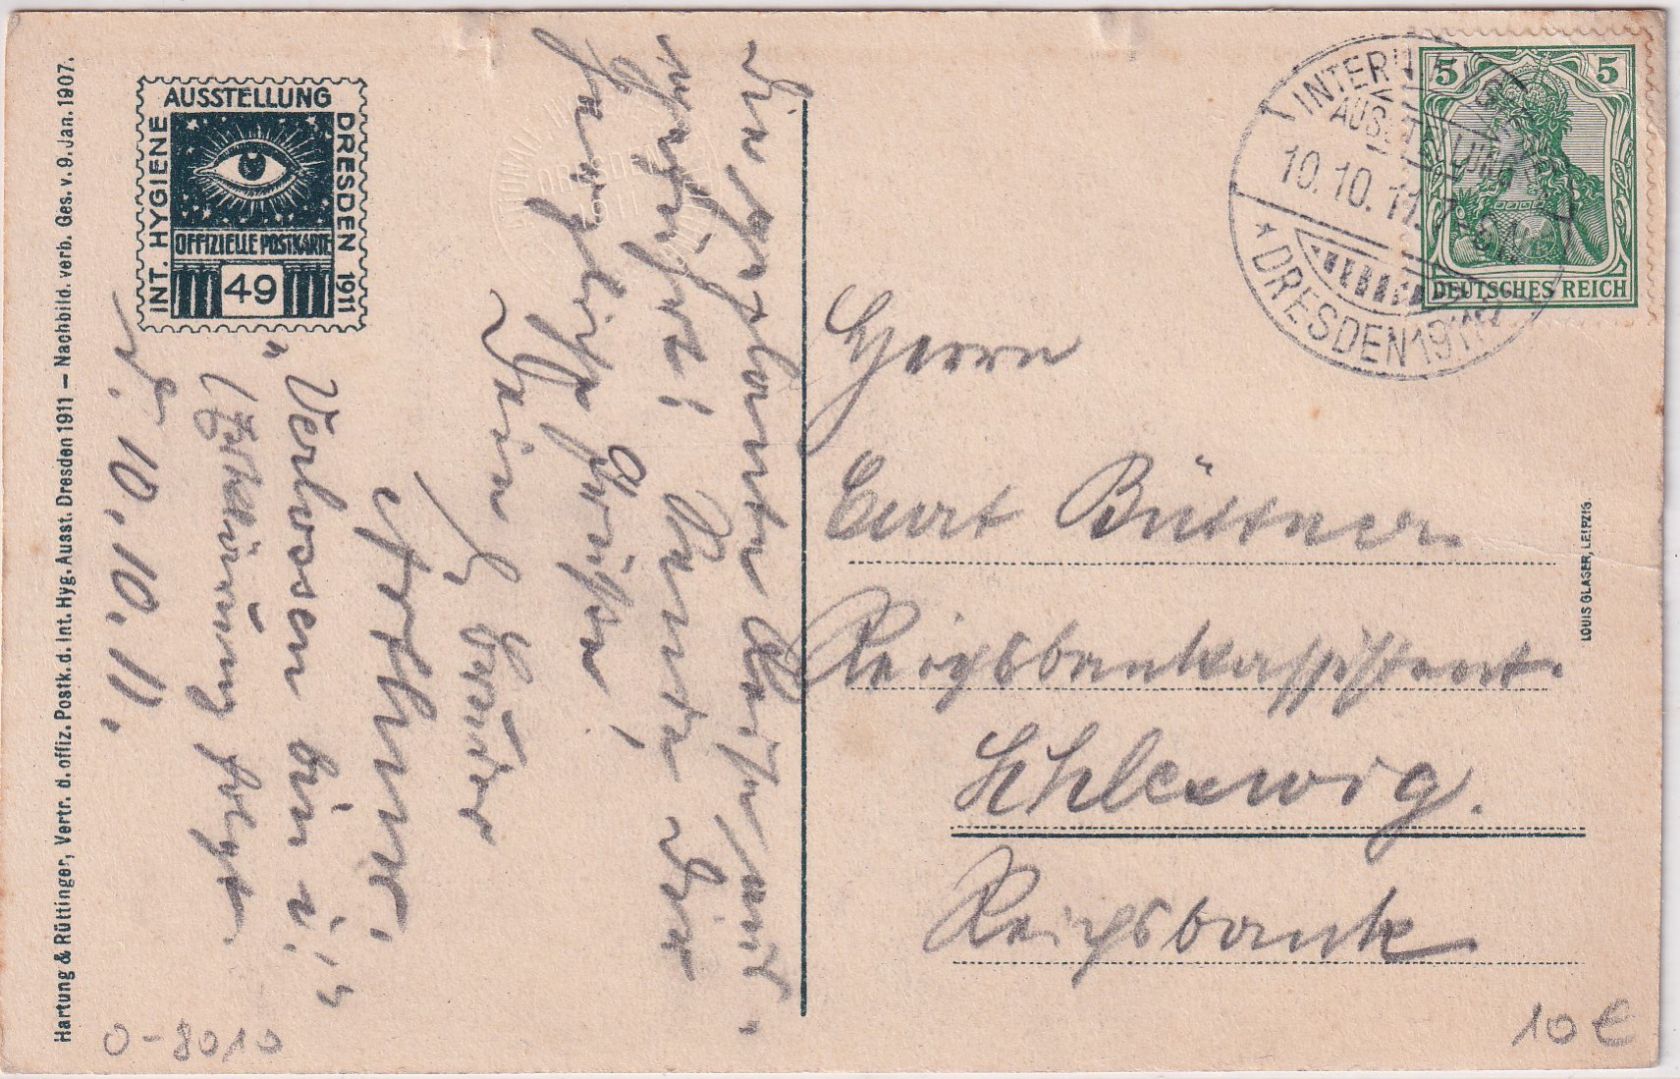 Hartung & Rüttinger, Vertr. d. offiz. Postk. d. Int. Hyg. Ausst. Dresden 1911 — Nachbild. verb. Ges. v. 9. Jan. 1907.
AUSSTELLUNG
INT. HYGIENE
DRESDEN 1911
OFFIZIELLE POSTKARTE
49
DRESDEN
1911
herzliche Grüßen!
Dein Bruder
Arthur.
„Verlosen bin i!"
(Erklärung folgt
D. 10. 10. 11.
INTERN
AUSSTELLUNG
10.10.11. 7-8 N
* DRESDEN 1911
5 5
DEUTSCHES REICH
Herrn
Curt Büttner
Reichsbankassistent.
Schleswig.
Reichsbank
LOUIS GLASER, LEIPZIG.
O-8010
10 €